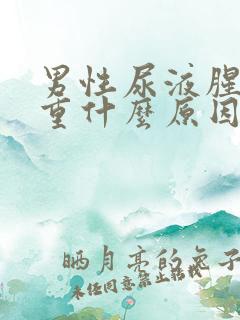 男性尿液腥
重什麼原因
晒月亮的兔子
未经同意禁止转载